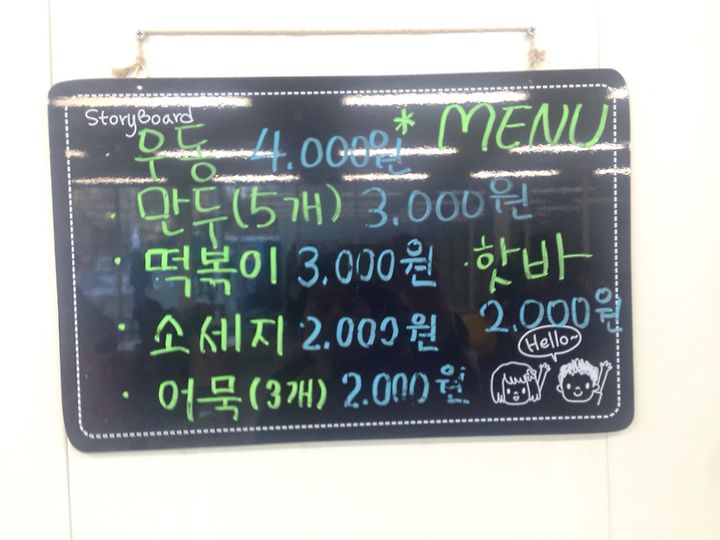 StoryBoard
* MENU
· 우동 4.000원
· 만두(5개) 3.000원
· 떡볶이 3.000원
· 핫바
2.000원
· 소세지 2.000원
Hello~
· 어묵(3개) 2.000원